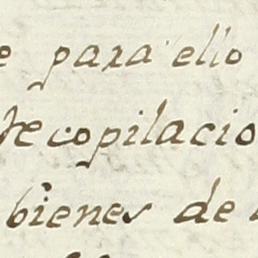 e para ello
recopilacio
bienes de